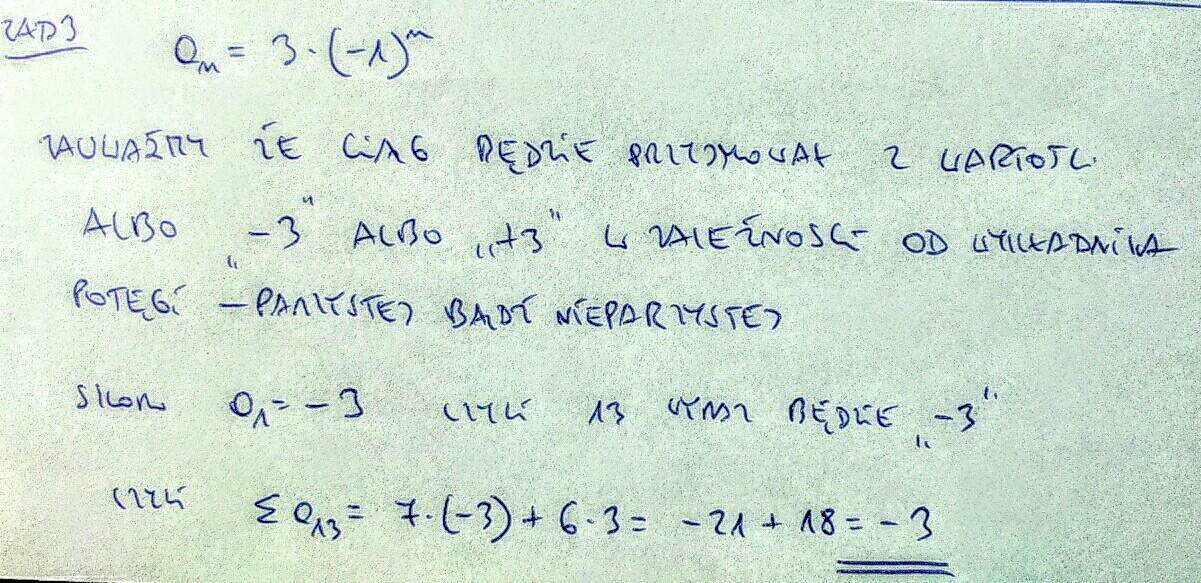 ZAD3
a_n = 3·(-1)^n
ZAUWAŻMY ŻE CIĄG BĘDZIE PRZYJMOWAŁ 2 WARTOŚCI
ALBO „-3" ALBO „+3" W ZALEŻNOŚCI OD WYKŁADNIKA
POTĘGI – PARZYSTEJ BĄDŹ NIEPARZYSTEJ
SKORO a_1 = -3 CZYLI 13 WYRAZ BĘDZIE „-3"
CZYLI Σ a_13 = 7·(-3) + 6·3 = -21 + 18 = -3